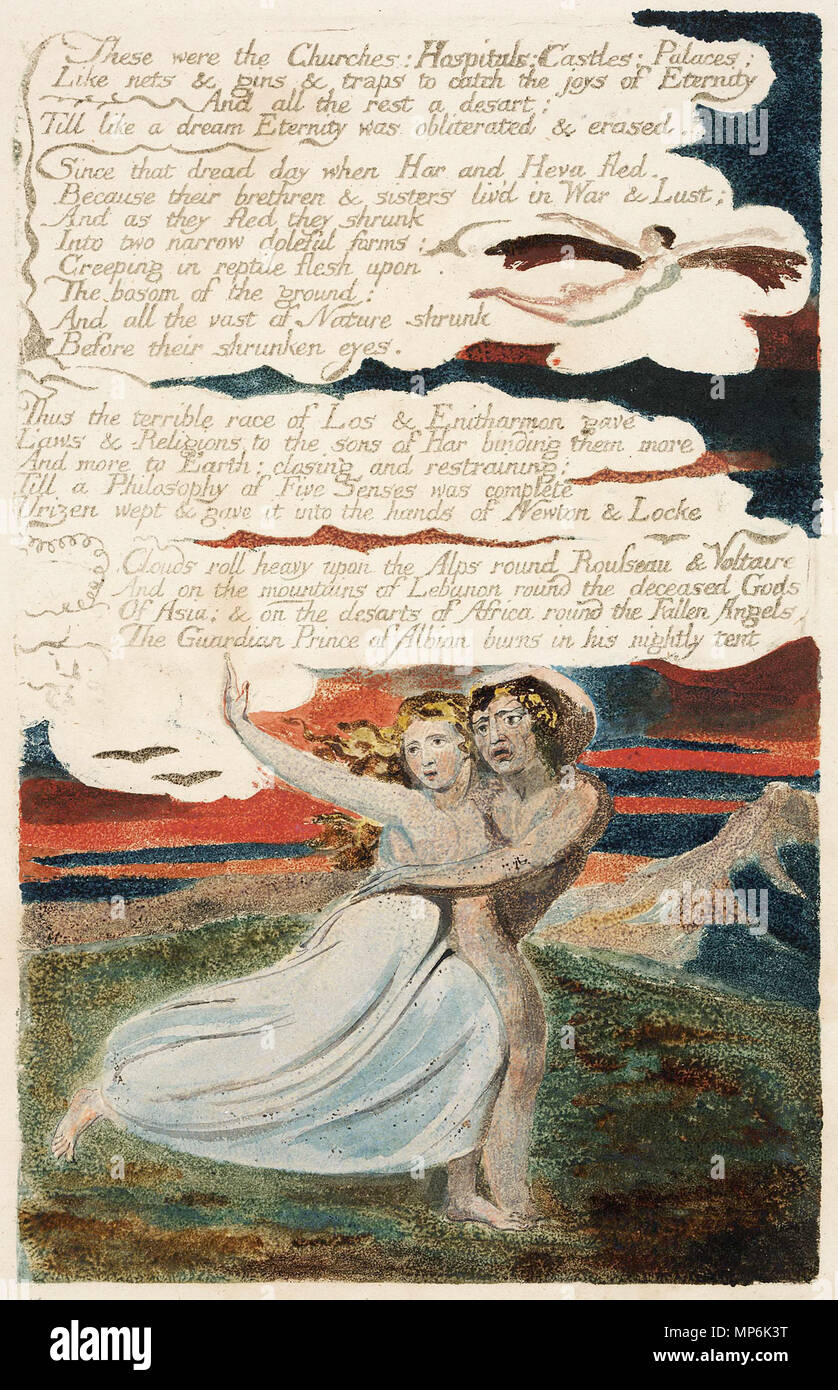 These were the Churches: Hospitals: Castles: Palaces:
Like nets & gins & traps to catch the joys of Eternity
And all the rest a desart;
Till like a dream Eternity was obliterated & erased.
Since that dread day when Har and Heva fled.
Because their brethren & sisters liv'd in War & Lust;
And as they fled they shrunk
Into two narrow doleful forms:
Creeping in reptile flesh upon
The bosom of the ground:
And all the vast of Nature shrunk
Before their shrunken eyes.
Thus the terrible race of Los & Enitharmon gave
Laws & Religions to the sons of Har binding them more
And more to Earth: closing and restraining:
Till a Philosophy of Five Senses was complete
Urizen wept & gave it into the hands of Newton & Locke
Clouds roll heavy upon the Alps round Rousseau & Voltaire
And on the mountains of Lebanon round the deceased Gods
Of Asia; & on the desarts of Africa round the Fallen Angels
The Guardian Prince of Albion burns in his nightly tent
alamy
alamy
a
a
a
a
alamy
Image ID: MP6K3T
www.alamy.com